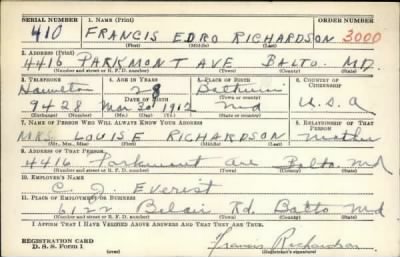 SERIAL NUMBER 1. NAME (Print) ORDER NUMBER
410 FRANCIS EDRO RICHARDSON 3000
(First) (Middle) (Last)
2. ADDRESS (Print)
4416 PARKMONT AVE BALTO. MD.
(Number and street or R. F. D. number) (Town) (County) (State)
3. TELEPHONE 4. AGE IN YEARS 5. PLACE OF BIRTH 6. COUNTRY OF CITIZENSHIP
Hamilton 28 Baltimore
DATE OF BIRTH
9428 Mar 30 1912 Md U.S.A
(Exchange) (Number) (Mo.) (Day) (Yr.) (State or country)
7. NAME OF PERSON WHO WILL ALWAYS KNOW YOUR ADDRESS 8. RELATIONSHIP OF THAT PERSON
MRS. LOUISE RICHARDSON Mother
(Mr., Mrs., Miss) (First) (Middle) (Last)
9. ADDRESS OF THAT PERSON
4416 Parkmont Ave Balto Md
(Number and street or R. F. D. number) (Town) (County) (State)
10. EMPLOYER'S NAME
C. J. Everist
11. PLACE OF EMPLOYMENT OR BUSINESS
6122 Belair Rd. Balto Md
(Number and street or R. F. D. number) (Town) (County) (State)
I AFFIRM THAT I HAVE VERIFIED ABOVE ANSWERS AND THAT THEY ARE TRUE.
REGISTRATION CARD
D. S. S. Form 1 (over) Francis Richardson
(Registrant's signature)